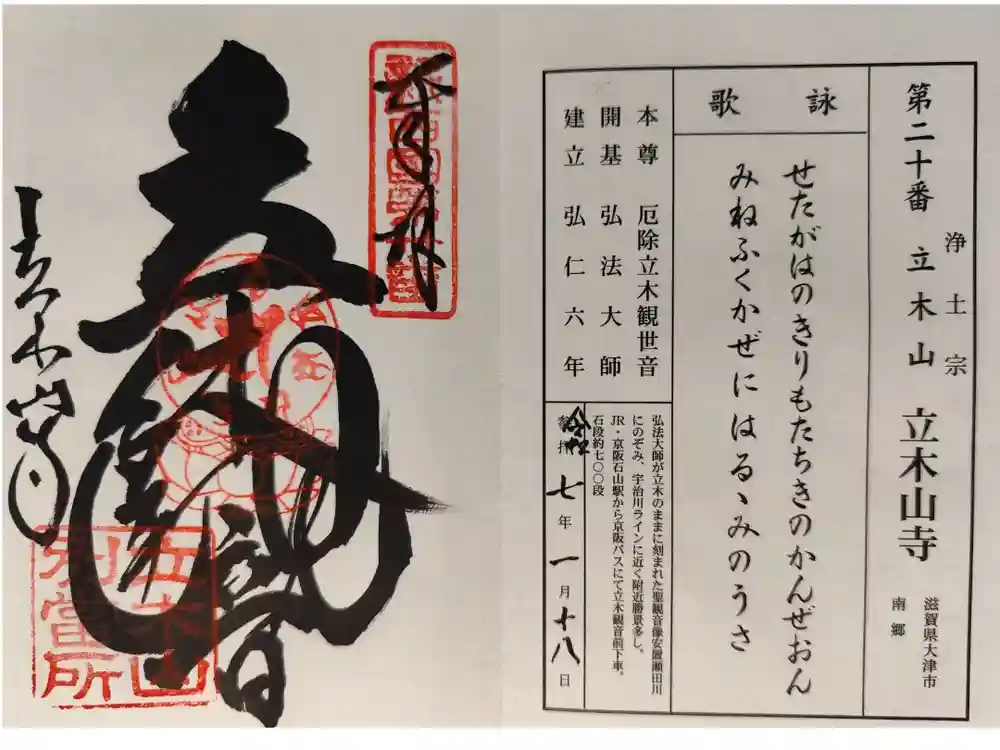 浄土宗
第二十番 立木山 立木山寺
滋賀県大津市
南郷
詠歌
せたがはのきりもたちきのかんぜおん
みねふくかぜにはるゝみのうさ
本尊 厄除立木観世音
開基 弘法大師
建立 弘仁六年
弘法大師が立木のままに刻まれた聖観音像安置瀬田川
にのぞみ、宇治川ラインに近く附近勝景多し。
JR・京阪石山駅から京阪バスにて立木観音前下車。
石段約七〇〇段
令和七年一月十八日
奉拝
立木観音
立木山寺
立木山
別當所